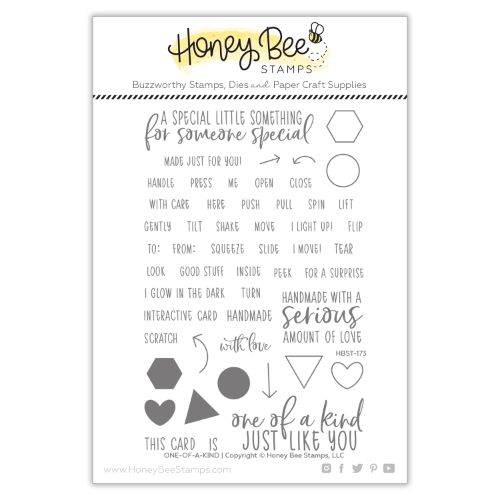 Honey Bee
STAMPS
Buzzworthy Stamps, Dies and Paper Craft Supplies
A SPECIAL LITTLE SOMETHING
for someone special
MADE JUST FOR YOU!
HANDLE PRESS ME OPEN CLOSE
WITH CARE HERE PUSH PULL SPIN LIFT
GENTLY TILT SHAKE MOVE I LIGHT UP! FLIP
TO: FROM: SQUEEZE SLIDE I MOVE! TEAR
LOOK GOOD STUFF INSIDE PEEK FOR A SURPRISE
I GLOW IN THE DARK TURN
INTERACTIVE CARD HANDMADE
HANDMADE WITH A
serious
AMOUNT OF LOVE
SCRATCH
with love
HBST-173
one of a kind
THIS CARD IS JUST LIKE YOU
ONE-OF-A-KIND | Copyright © Honey Bee Stamps, LLC
www.HoneyBeeStamps.com